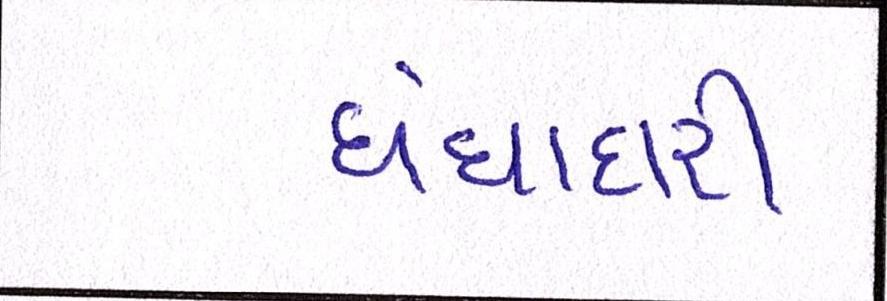 ધંધાદારી